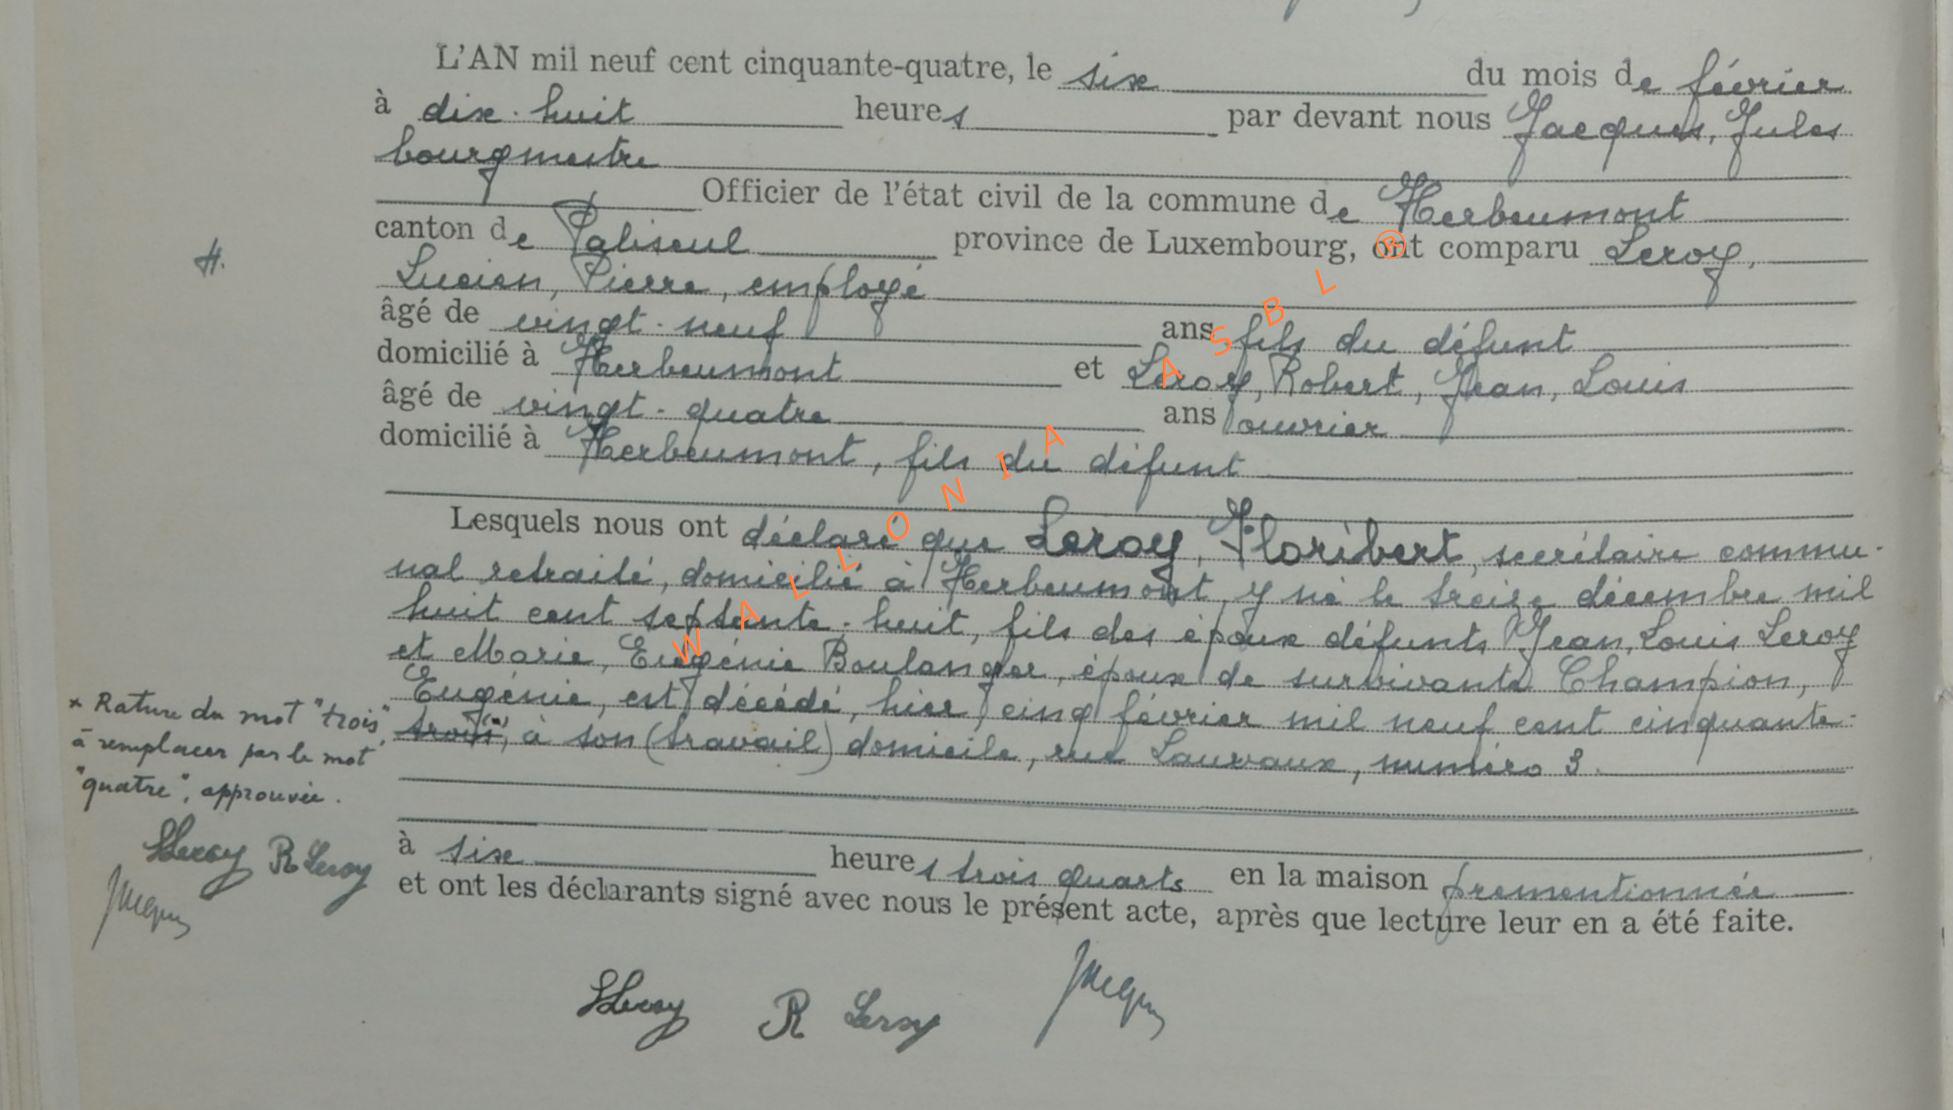 L'AN mil neuf cent cinquante-quatre, le six du mois de février
à dix-huit heures par devant nous Jacques, Jules
bourgmestre
Officier de l'état civil de la commune de Herbeumont
canton de Paliseul province de Luxembourg, ont comparu Leroy,
Lucien, Pierre, employé
âgé de vingt-neuf ans fils du défunt
domicilié à Herbeumont et Leroy, Robert, Jean, Louis
âgé de vingt-quatre ans ouvrier
domicilié à Herbeumont, fils du défunt
Lesquels nous ont déclaré que Leroy, Floribert, secrétaire commu-
nal retraité, domicilié à Herbeumont, y né le treize décembre mil
huit cent septante-huit, fils des époux défunts Jean, Louis Leroy
et Marie, Eugénie Boulanger, époux de survivante Champion,
Eugénie, est décédé, hier, cinq février mil neuf cent cinquante-
trois(x), à son (travail) domicile, rue Lauvaux, numéro 3.
à six heures trois quarts en la maison prémentionnée
et ont les déclarants signé avec nous le présent acte, après que lecture leur en a été faite.
LLeroy R Leroy Jacques
H.
x Rature du mot "trois"
à remplacer par le mot
"quatre", approuvée.
LLeroy R Leroy
Jacques
WALLONIA ASBL ®